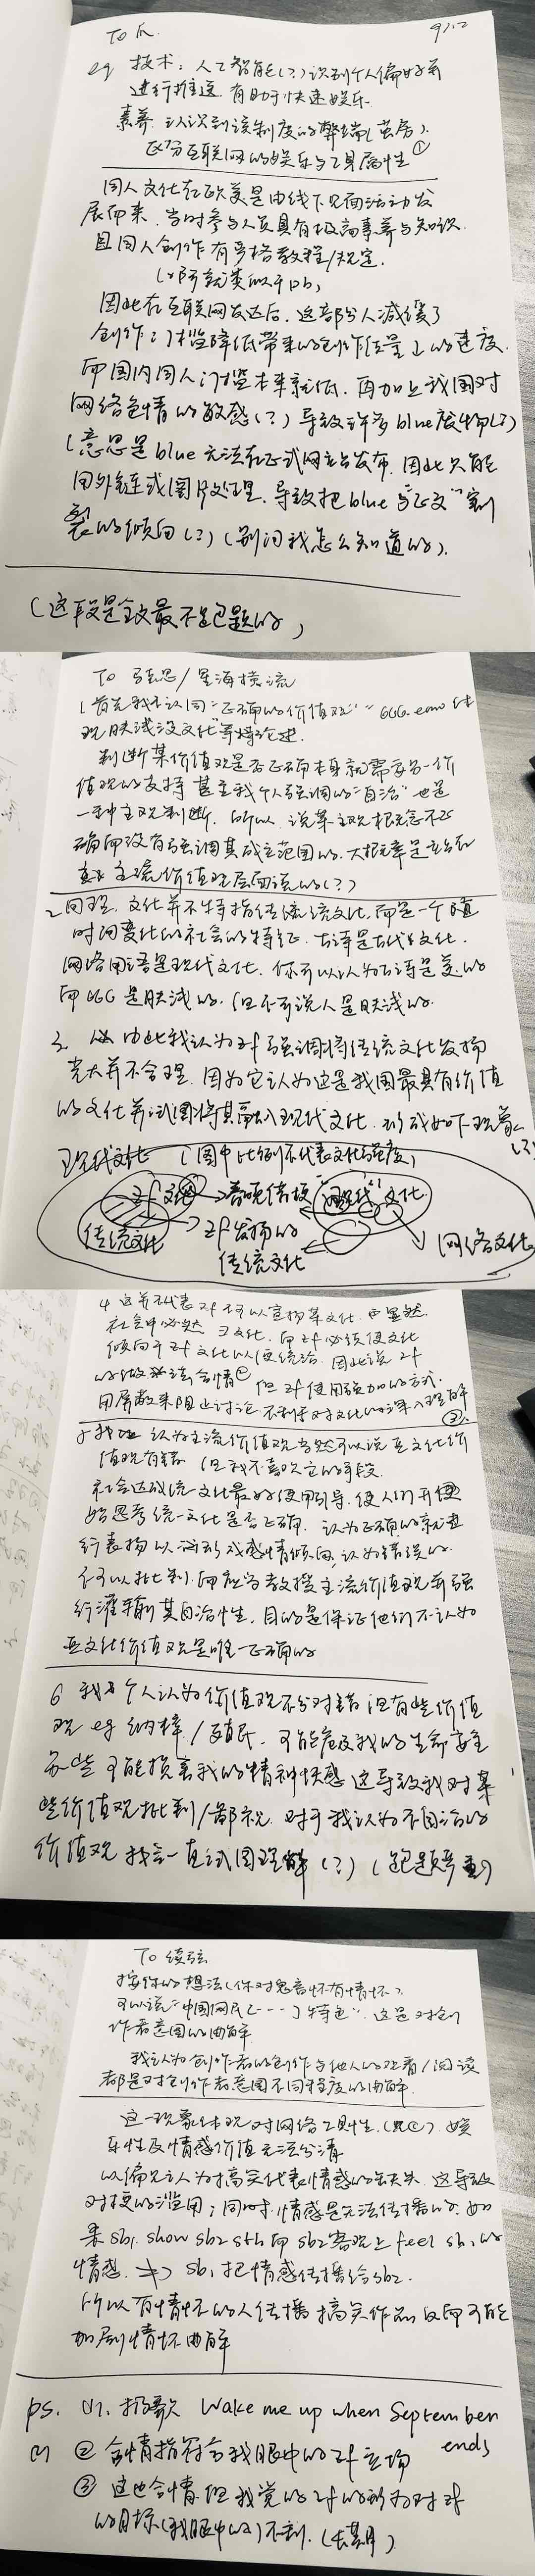 TO 爪.
9.12
eg 技术: 人工智能(?)识别个人偏好并
进行推送. 有助于快速娱乐.
素养: 认识到该制度的弊端(茧房).
区分互联网的娱乐与工具属性①
同人文化在欧美是由线下见面活动发
展而来. 当时参与人员具有极高素养与知识.
且同人创作有严格教程/规定.
因此在互联网发达后, 这部分人减缓了
创作门槛降低带来的创作质量↓的速度.
而国内同人门槛本来就低. 再加上我国对
网络色情的敏感(?) 导致许多blue废物(?)
(意思是blue无法在正式网站发布. 因此只能
用外链或图片处理. 导致把blue与正文"割
裂的倾向(?) (别问我怎么知道的).
(这段是全文最不跑题的)
To 弦思/星海横流
1 首先我不认同"正确的价值观""GGG. emo 体
现肤浅没文化"等论述.
判断某价值观是否正确本身就需要另一价
值观的支持 甚至我个人强调的"自洽"也是
一种主观判断. 所以, 说某主观概念不正
确而没有强调其成立范围的. 大概率是站在
主流价值观层面说的(?)
2 同理. 文化并不特指传统文化, 而是一个随
时间变化的社会的特征. 古诗是古代文化.
网络用语是现代文化. 你可以认为古诗是美的
而GGG是肤浅的. 但不可说人是肤浅的.
3. 由此我认为zf强调将传统文化发扬
光大并不合理. 因为它认为这是我国最具有价值
的文化并试图将其融入现代文化. 形成如下现象
(?)
现代文化 (图中比例不代表文化强度)
zf文化
传统文化
zf发扬的
传统文化
网络文化
4 这并不代表zf不可以宣扬某文化.
社会中必然∃文化. 而zf必须使文化
倾向于zf文化以便统治. 因此说zf
的做法合情② 但zf使用强加的方式.
用屏蔽来阻止讨论 不利于对文化的深入理解
③.
5 我认为主流价值观当然可以说亚文化价
值观有错 但我不喜欢它的手段.
社会达成统一文化最好使用引导. 使人们开
始思考统一文化是否正确. 认为正确的就进
行表扬以形成感情倾向, 认为错误的
可以批判. 而应当教授主流价值观并强
行灌输其自洽性. 目的是保证他们不认为
亚文化价值观是唯一正确的
6 我个人认为价值观不分对错 但有些价值
观 eg 纳粹/殖民. 可能危及我的生命安全
有些可能损害我的精神快感 这导致我对某
些价值观批判/鄙视. 对于我认为不自洽的
价值观 我会一直试图理解(?) (跑题严重)
To 续弦
按你的想法(你对鬼畜怀有情怀?
可以说"中国网民[---]特色". 这是对创
作者意图的曲解
我认为创作者的创作与他人的观看/阅读
都是对创作者意图不同程度的曲解.
这一现象体现对网络工具性. (见①) 娱
乐性及情感价值无法分清
以偏见认为搞笑代表情感的缺失. 这导致
对梗的滥用; 同时. 情感是无法传播的. 如
果sb₁ show sb₂ sth 而sb₂客观上feel sb₁的
情感. ≠> sb₁把情感传播给sb₂.
所以有情怀的人传播搞笑作品反而可能
加剧情怀曲解
ps. (1). 推歌 Wake me up when September
ends
(2) ② 合情指符合我眼中的zf立场
③ 这也合情. 但我觉的zf的所为对zf
的目标(我眼中的)不利. (长期)